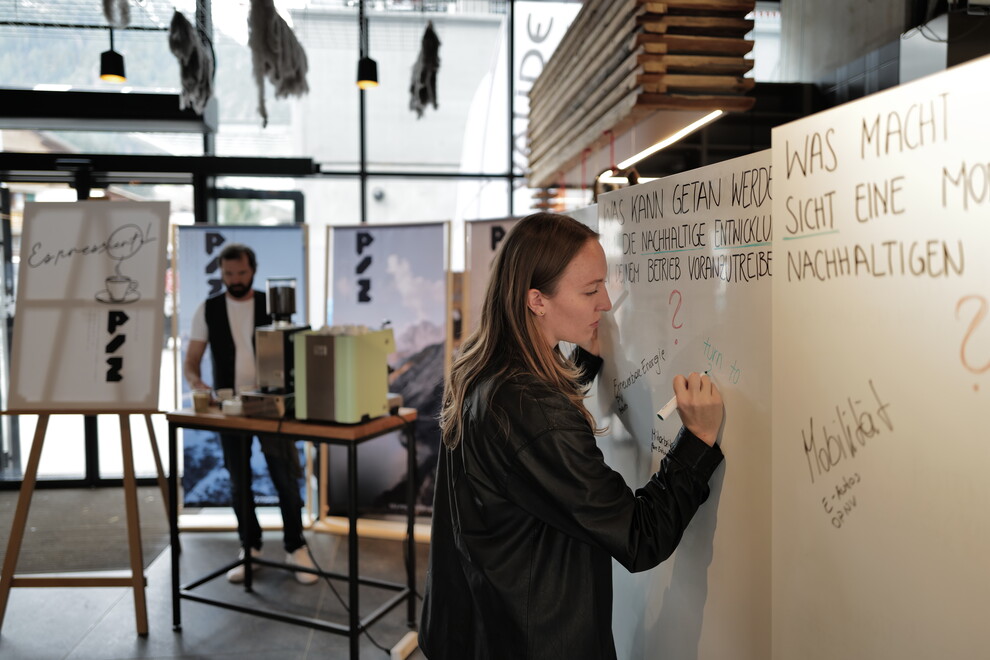 Espressomobil
PSZ
PSZ
PSZ
P
WAS KANN GETAN WERDE
DIE NACHHALTIGE ENTWICKLU
DEINEM BETRIEB VORANTREIBE
?
Erneuerbare Energie
turn to
WAS MACHT
SICHT EINE MO
NACHHALTIGEN
?
Mobilität
E-Autos
ÖPNV